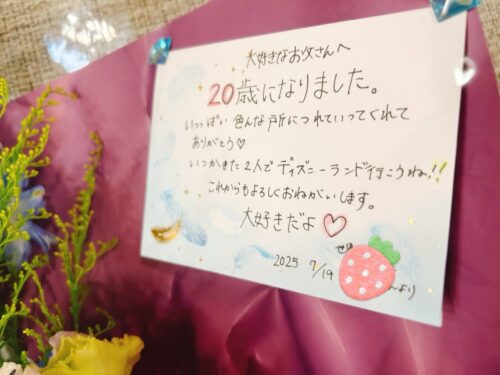 大好きなお父さんへ
20歳になりました。
いっぱい色んな所につれていってくれて
ありがとう♡
いつかまた2人でディズニーランド行こうね!!
これからもよろしくおねがいします。
大好きだよ♡
2025 7/19
より